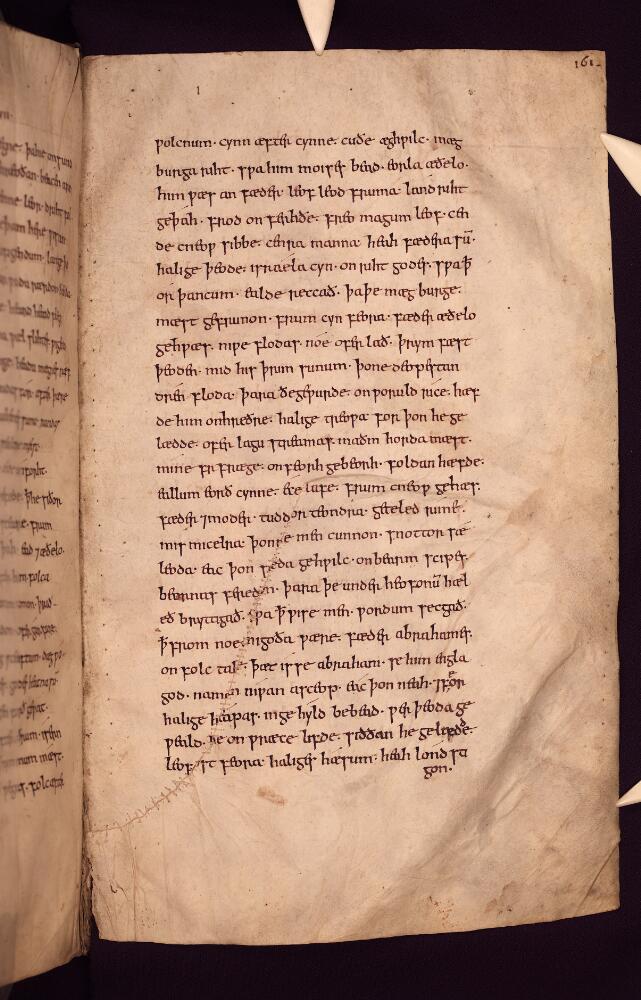 ƿolcnum· cynn æfter cynne· cuðe æghƿilc· mæg
burga riht· sƿa him moises bead· eorla æðelo·
him ƿæs an fæder· leof leod fruma· land riht
geþah· frod on ferhðe· freo magum leof· cen
de cneoƿ sibbe· cenra manna· heah fædera sū·
halige þeode· israela cyn· on riht godes· sƿa ꝥ
or þancum· ealde reccað· þa þe mæg burge·
mæst gefrunon· frum cyn feora· fæder æðelo
gehƿæs· niƿe flodas· noe ofer lað· þrym fæst
þeoden· mid his þrim sunum· þone deopestan
dren floda· þara ðe geƿurde· on ƿoruld rice· hæf
de him on hreðre· halige treoƿa· for þon he ge
lædde· ofer lagu streamas· maðm horda mæst·
mine ge fræge· on feorh gebeorh· foldan hæfde·
eallum eorð cynne· ece lafe· frum cneoƿ gehƿæs·
fæder ⁊ moder· tuddor teondra· geteled rime·
mis micelra· þonne men cunnon· snottor sæ
leoda· eac þon sæda gehƿilc· on bearm scipes·
beornas feredon· þara þe under heofonū hæl
eð bryttigað· sƿa ꝥ ƿise men· ƿordum secgað·
ꝥ from noe· nigoða ƿære· fæder abrahames·
on folc tale· þæt is se abraham· se him engla
god· naman niƿan asceop· eac þon neah· ⁊ feor
halige heapas· in ge hyld bebead· ƿer þeoda ge
ƿeald· he on ƿræce lifde· siððan he gelædde·
leofost feora· haliges hæsum· heah lond sti
gon·
161